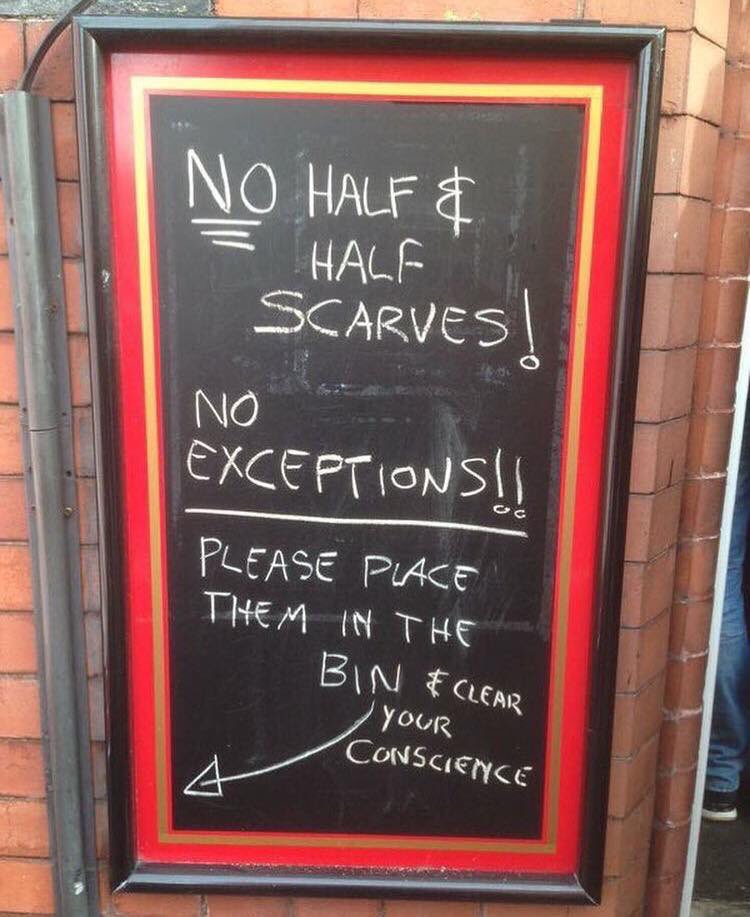 NO HALF &
HALF
SCARVES!
NO
EXCEPTIONS!!
PLEASE PLACE
THEM IN THE
BIN & CLEAR
YOUR
CONSCIENCE